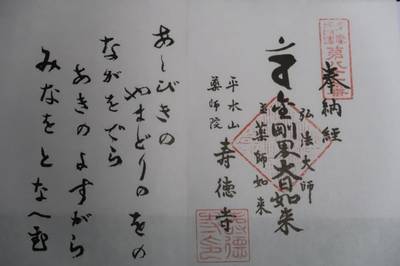 奉納経
弘法大師
金剛界大日如来
薬師如来
平水山
薬師院 寿徳寺
あしびきの
やまどりのをの
ながをでら
あきのよすがら
みなをとなへむ